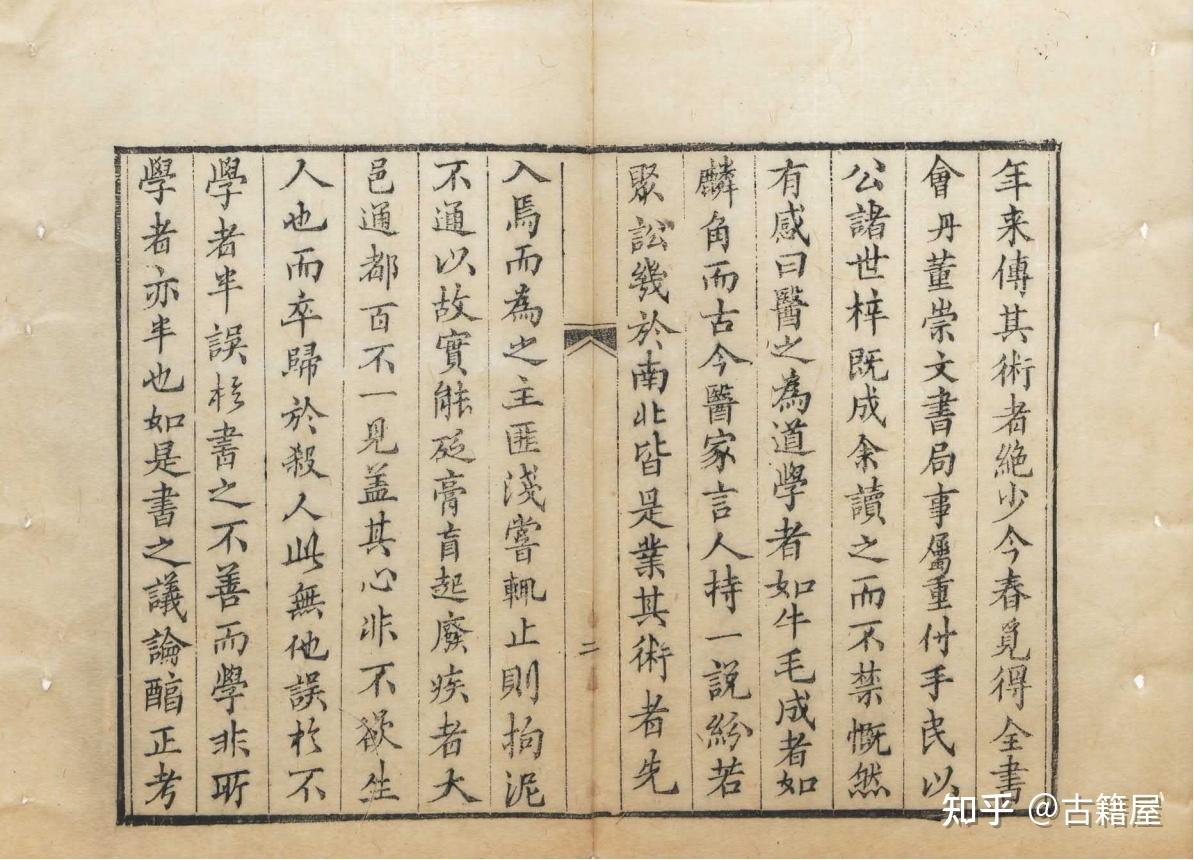 年来傳其術者絶少今春覓得全書
會丹董崇文書局事屬重付手民以
公諸世梓既成余讀之而不禁慨然
有感曰醫之為道學者如牛毛成者如
麟角而古今醫家言人持一説紛若
聚訟幾於南北皆是業其術者先
二
入焉而為之主匪淺嘗輒止則拘泥
不通以故實能砭膏肓起廢疾者大
邑通都百不一見盖其心非不欲生
人也而卒歸於殺人此無他誤於不
學者半誤於書之不善而學非所
學者亦半也如是書之議論酯正考
知乎 @古籍屋